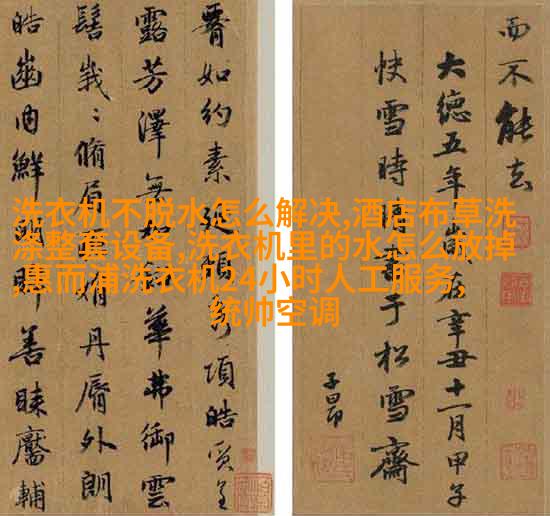 洗衣机不脱水怎么解决,酒店布草洗
涤整套设备,洗衣机里的水怎么放掉
,惠而浦洗衣机24小时人工服务,
统帅空调
而不能去
大德五年歲在辛丑十一月甲子
快雪時晴書于松雪齋
子昂
如約素延頸秀項皓質呈
露芳澤無加鉛華弗御雲
髻峩〻脩眉聯娟丹脣外朗
皓齒内鮮明眸善睞靨輔